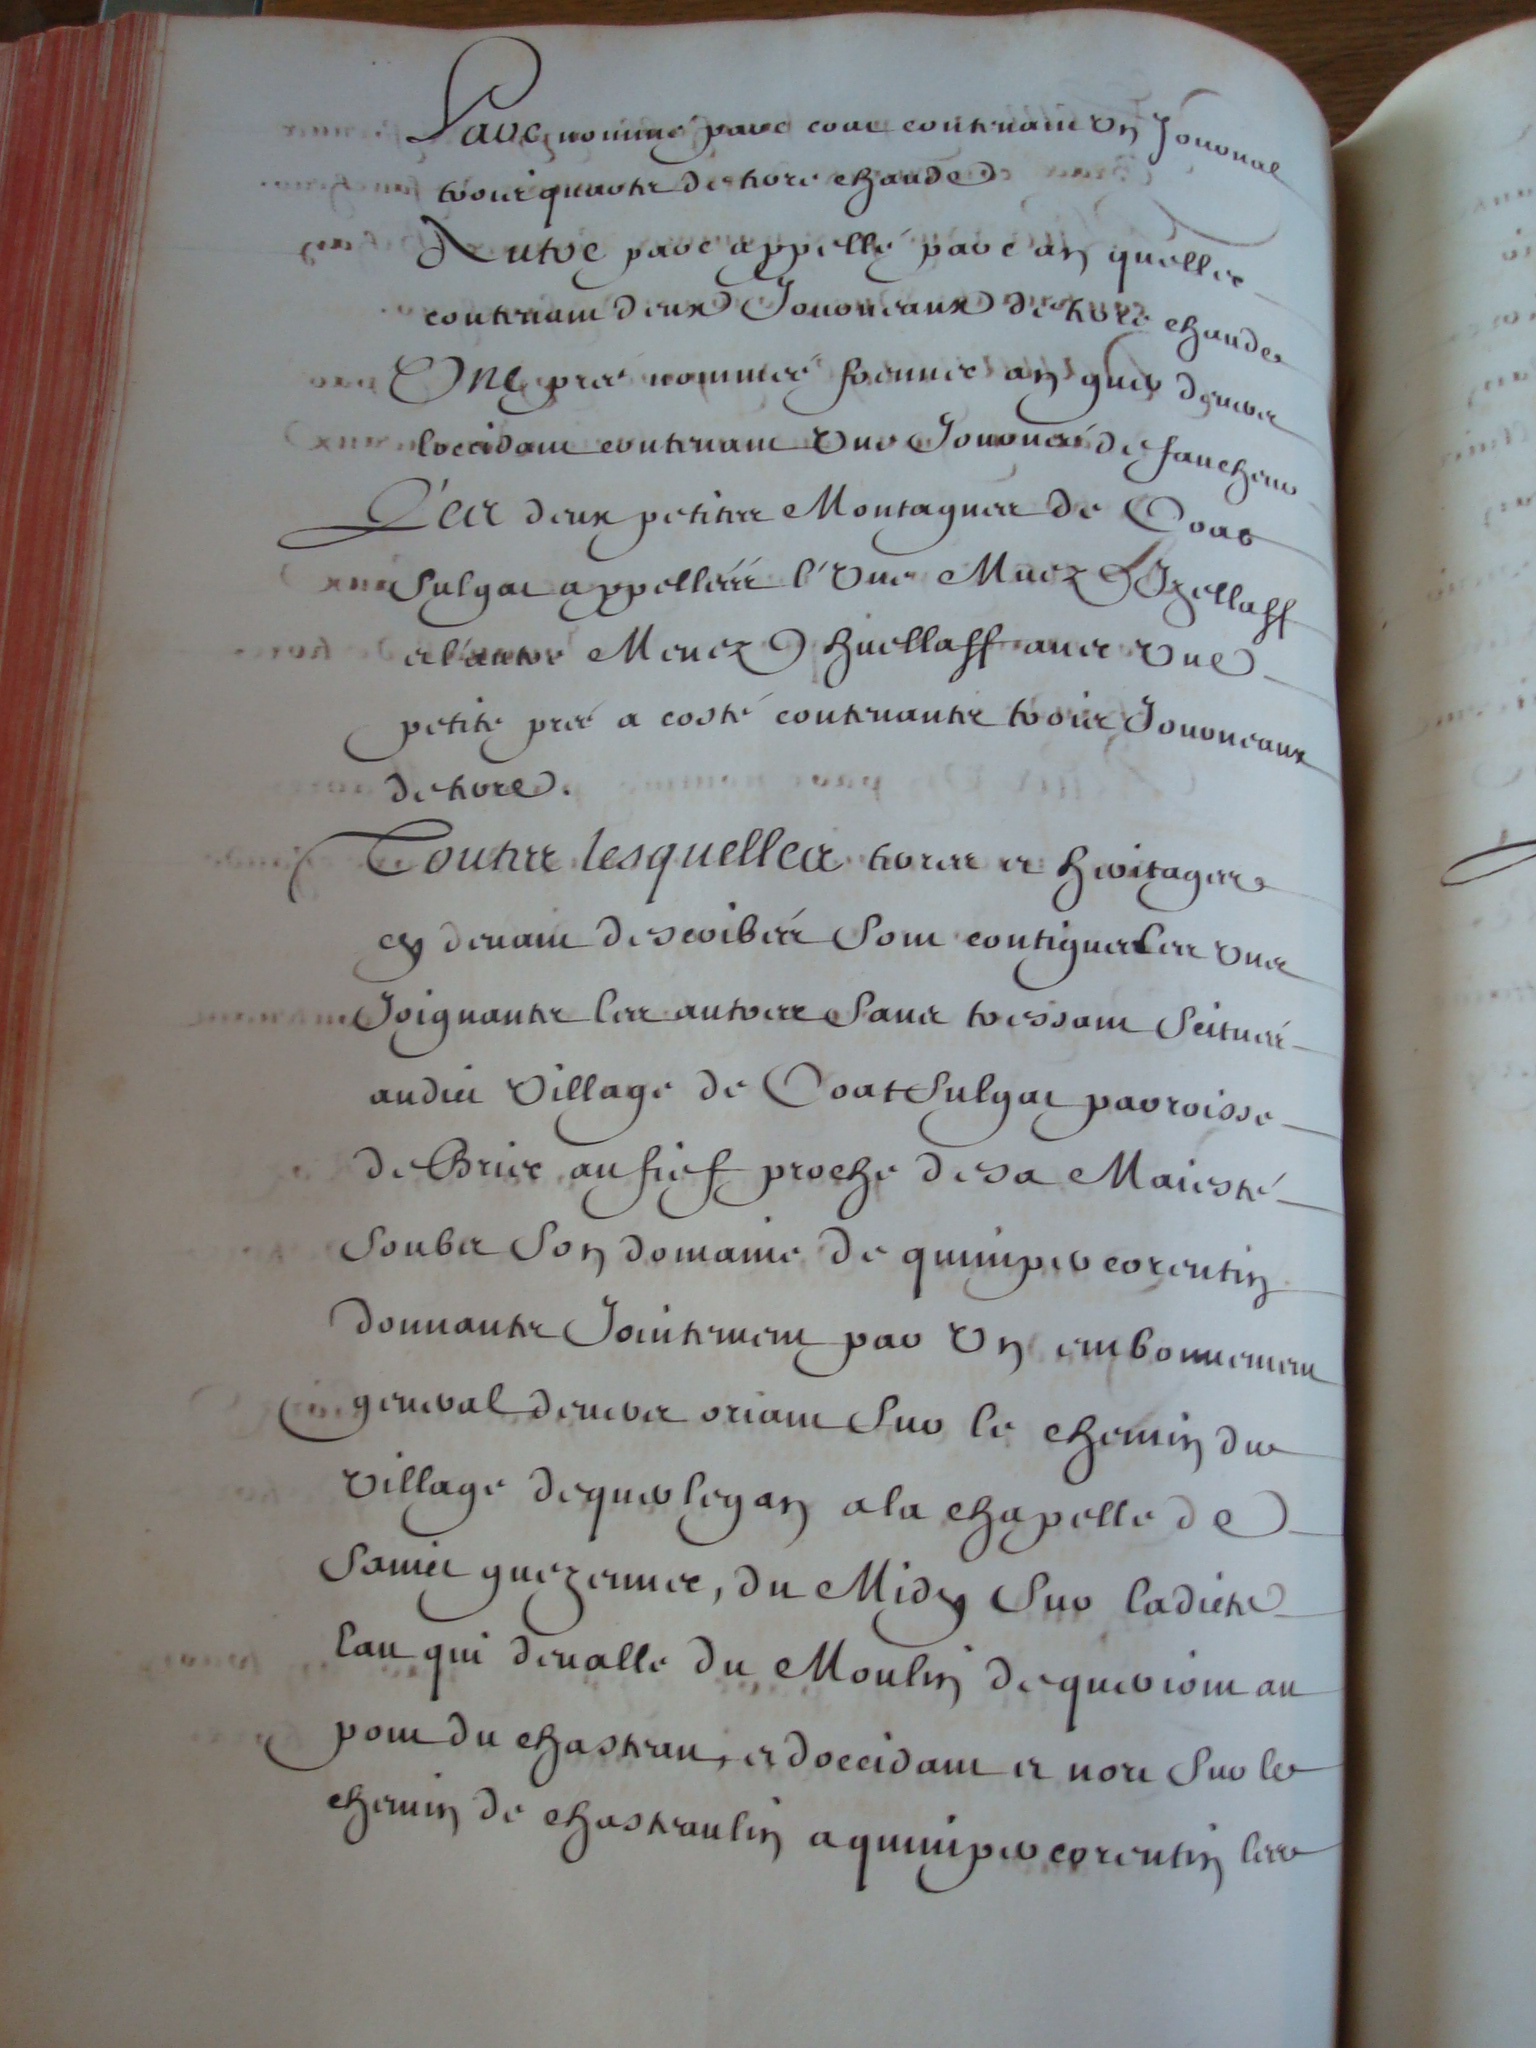 Parc nommé parc coat contenant un Journal
trois quarts de terre chaude
Autre parc appellé parc an quellec
contenant deux Journeaux de terre chaude
Une preé nommeé foennec an guer devers
loccidant contenant une Journeé de faucheur
Les deux petittes Montagnes de Coat
Sulgat appelleés l'une Menez Izellaff
et l'autre Menez Huellaff avec une
petite preé a costé contenants trois Journeaux
de terre.
Touttes lesquelles terres et heritages
cy devant describées sont contigues les unes
Joignants les autres sans ressant scitueés
audict village de Coat Sulgat parroisse
de Briec au fief proche de sa Maiesté
soubz son domaine de quimper corentin
donnants Jointement par un embornement
general devers oriant sur le chemin du
village de querlegan a la chapelle de
Sainct guezennec, du Midy sur ladicte
Eau qui devalle du Moulin de queriou au
pont du chasteau, et doccidant et nort sur le
chemin de chasteaulin a quimper corentin les